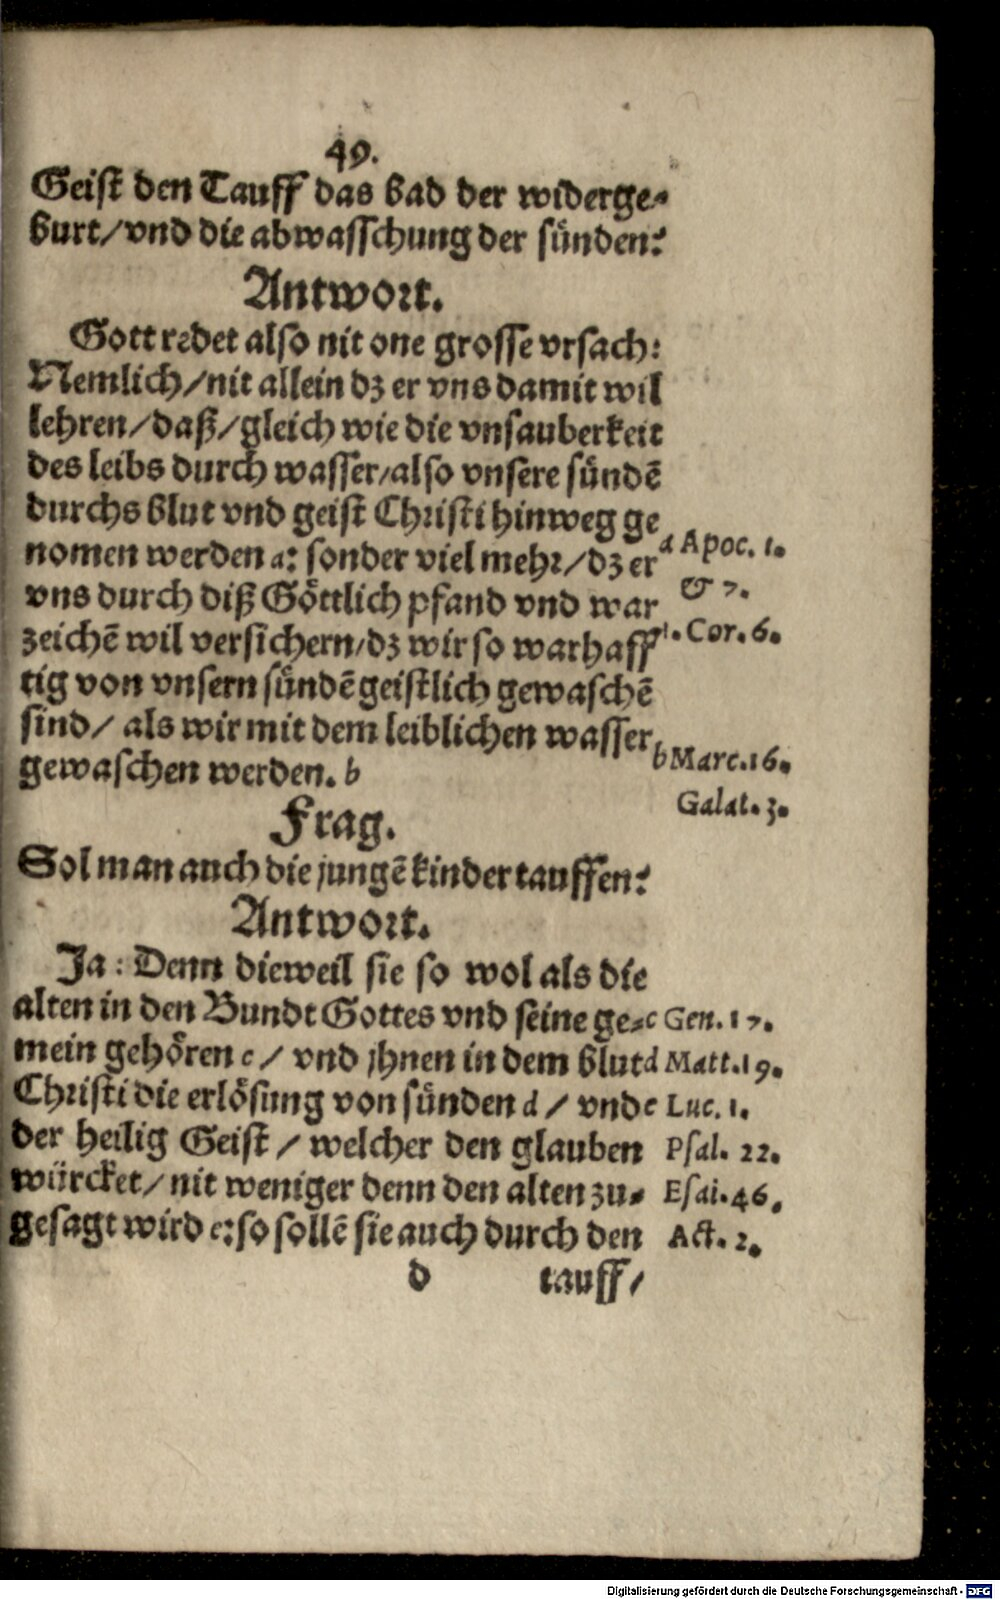 49.
Geist den Tauff das bad der widerge⸗
burt/vnd die abwasschung der sünden?
Antwort.
Gott redet also nit one grosse vrsach:
Nemlich/nit allein dz er vns damit wil
lehren/daß/gleich wie die vnsauberkeit
des leibs durch wasser/also vnsere sündē
durchs blut vnd geist Christi hinweg ge
nomen werden a: sonder viel mehr/dz er
a Apoc. 1.
vns durch diß Göttlich pfand vnd war
& 7.
zeichē wil versichern/dz wir so warhaff
1. Cor. 6.
tig von vnsern sündē geistlich gewaschē
sind/ als wir mit dem leiblichen wasser
b Marc. 16.
gewaschen werden. b
Galat. 3.
Frag.
Sol man auch die jungē kinder tauffen?
Antwort.
Ja: Denn dieweil sie so wol als die
alten in den Bundt Gottes vnd seine ge⸗
c Gen. 17.
mein gehören c/ vnd jhnen in dem blut
d Matt. 19.
Christi die erlösung von sünden d/ vnd
e Luc. 1.
der heilig Geist/ welcher den glauben
Psal. 22.
würcket/ nit weniger denn den alten zu⸗
Esai. 46.
gesagt wird e: so sollē sie auch durch den
Act. 2.
d tauff/
Digitalisierung gefördert durch die Deutsche Forschungsgemeinschaft - DFG